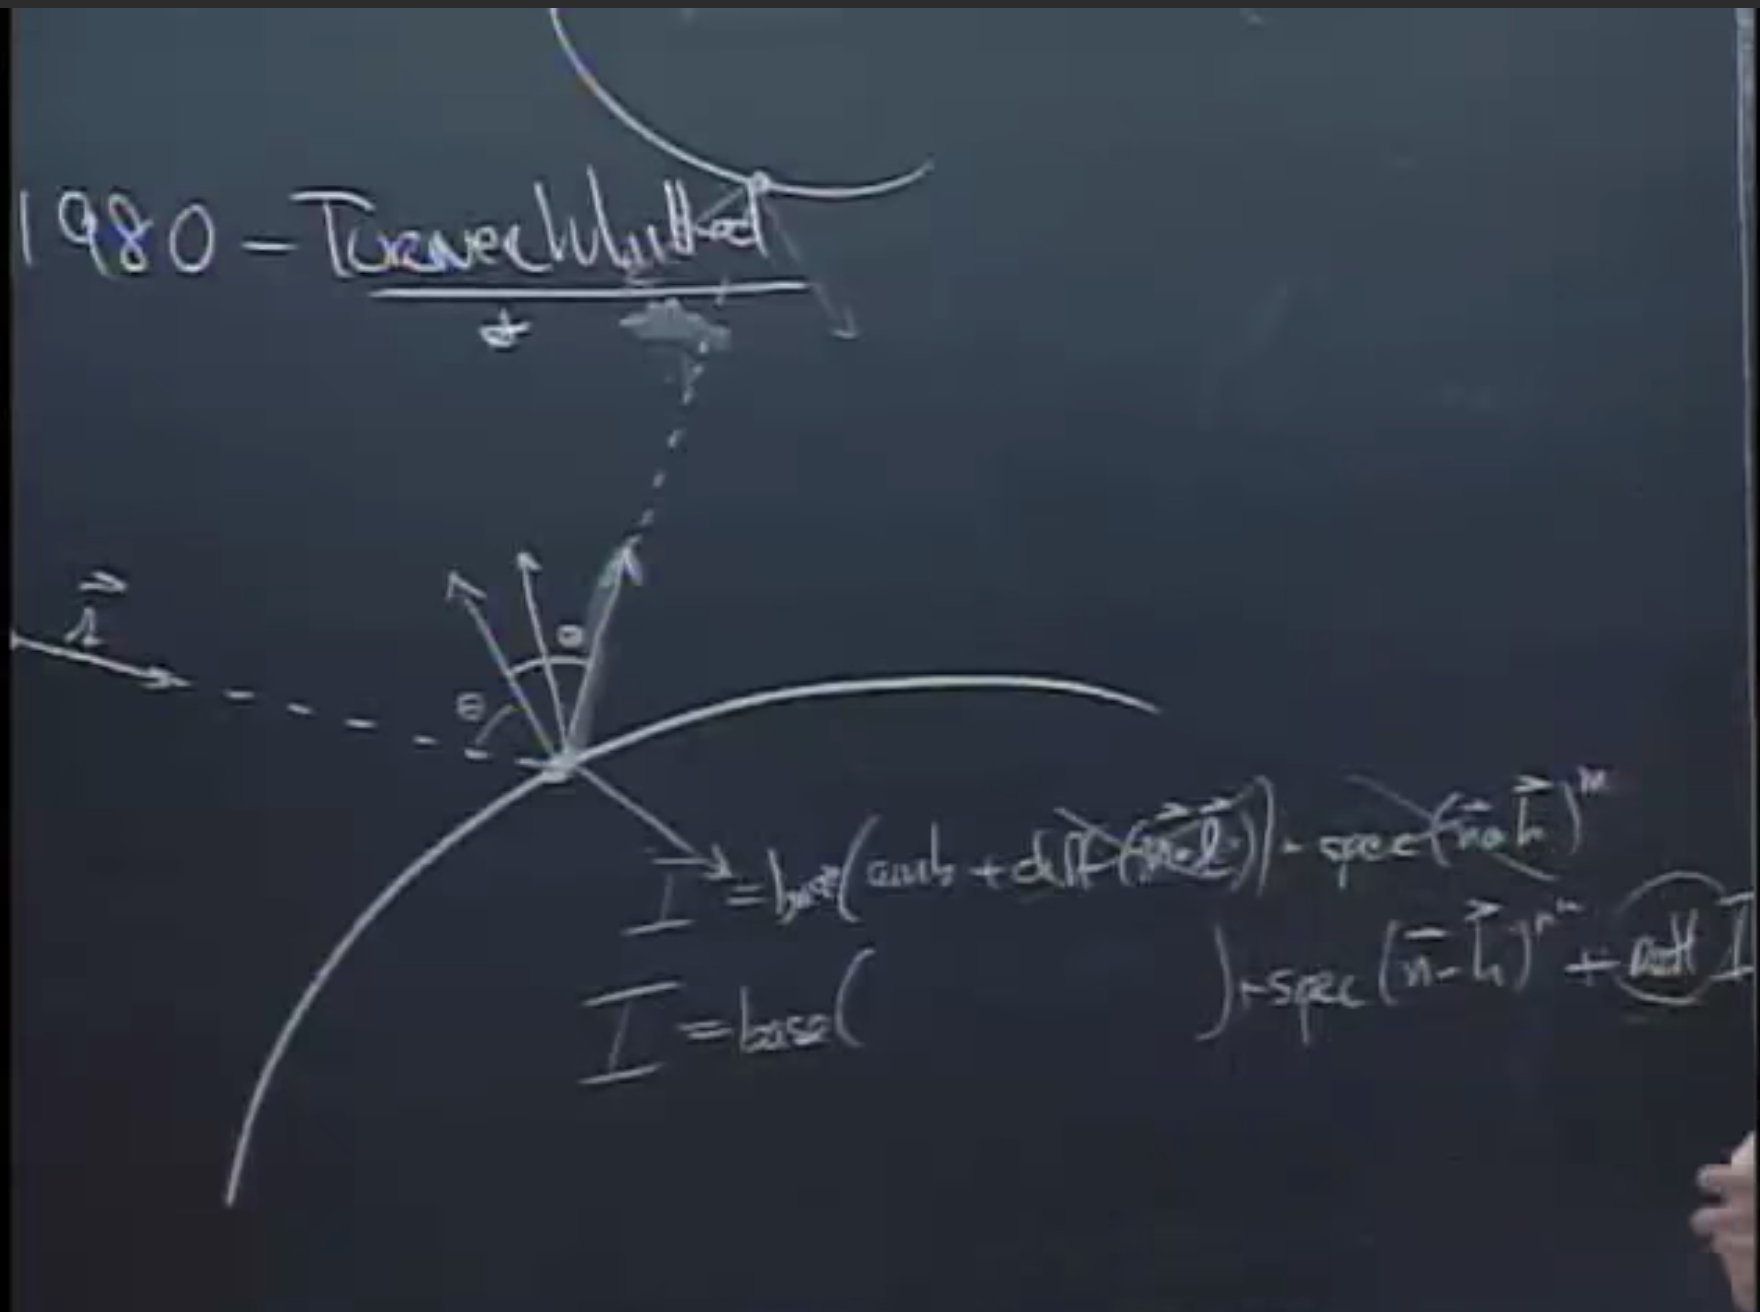 1980 - Turner Whitted
θ
θ
I = base(amb + diff(n·l)) + spec(n·h)^n
I = base( ) + spec(n·h)^n + att I